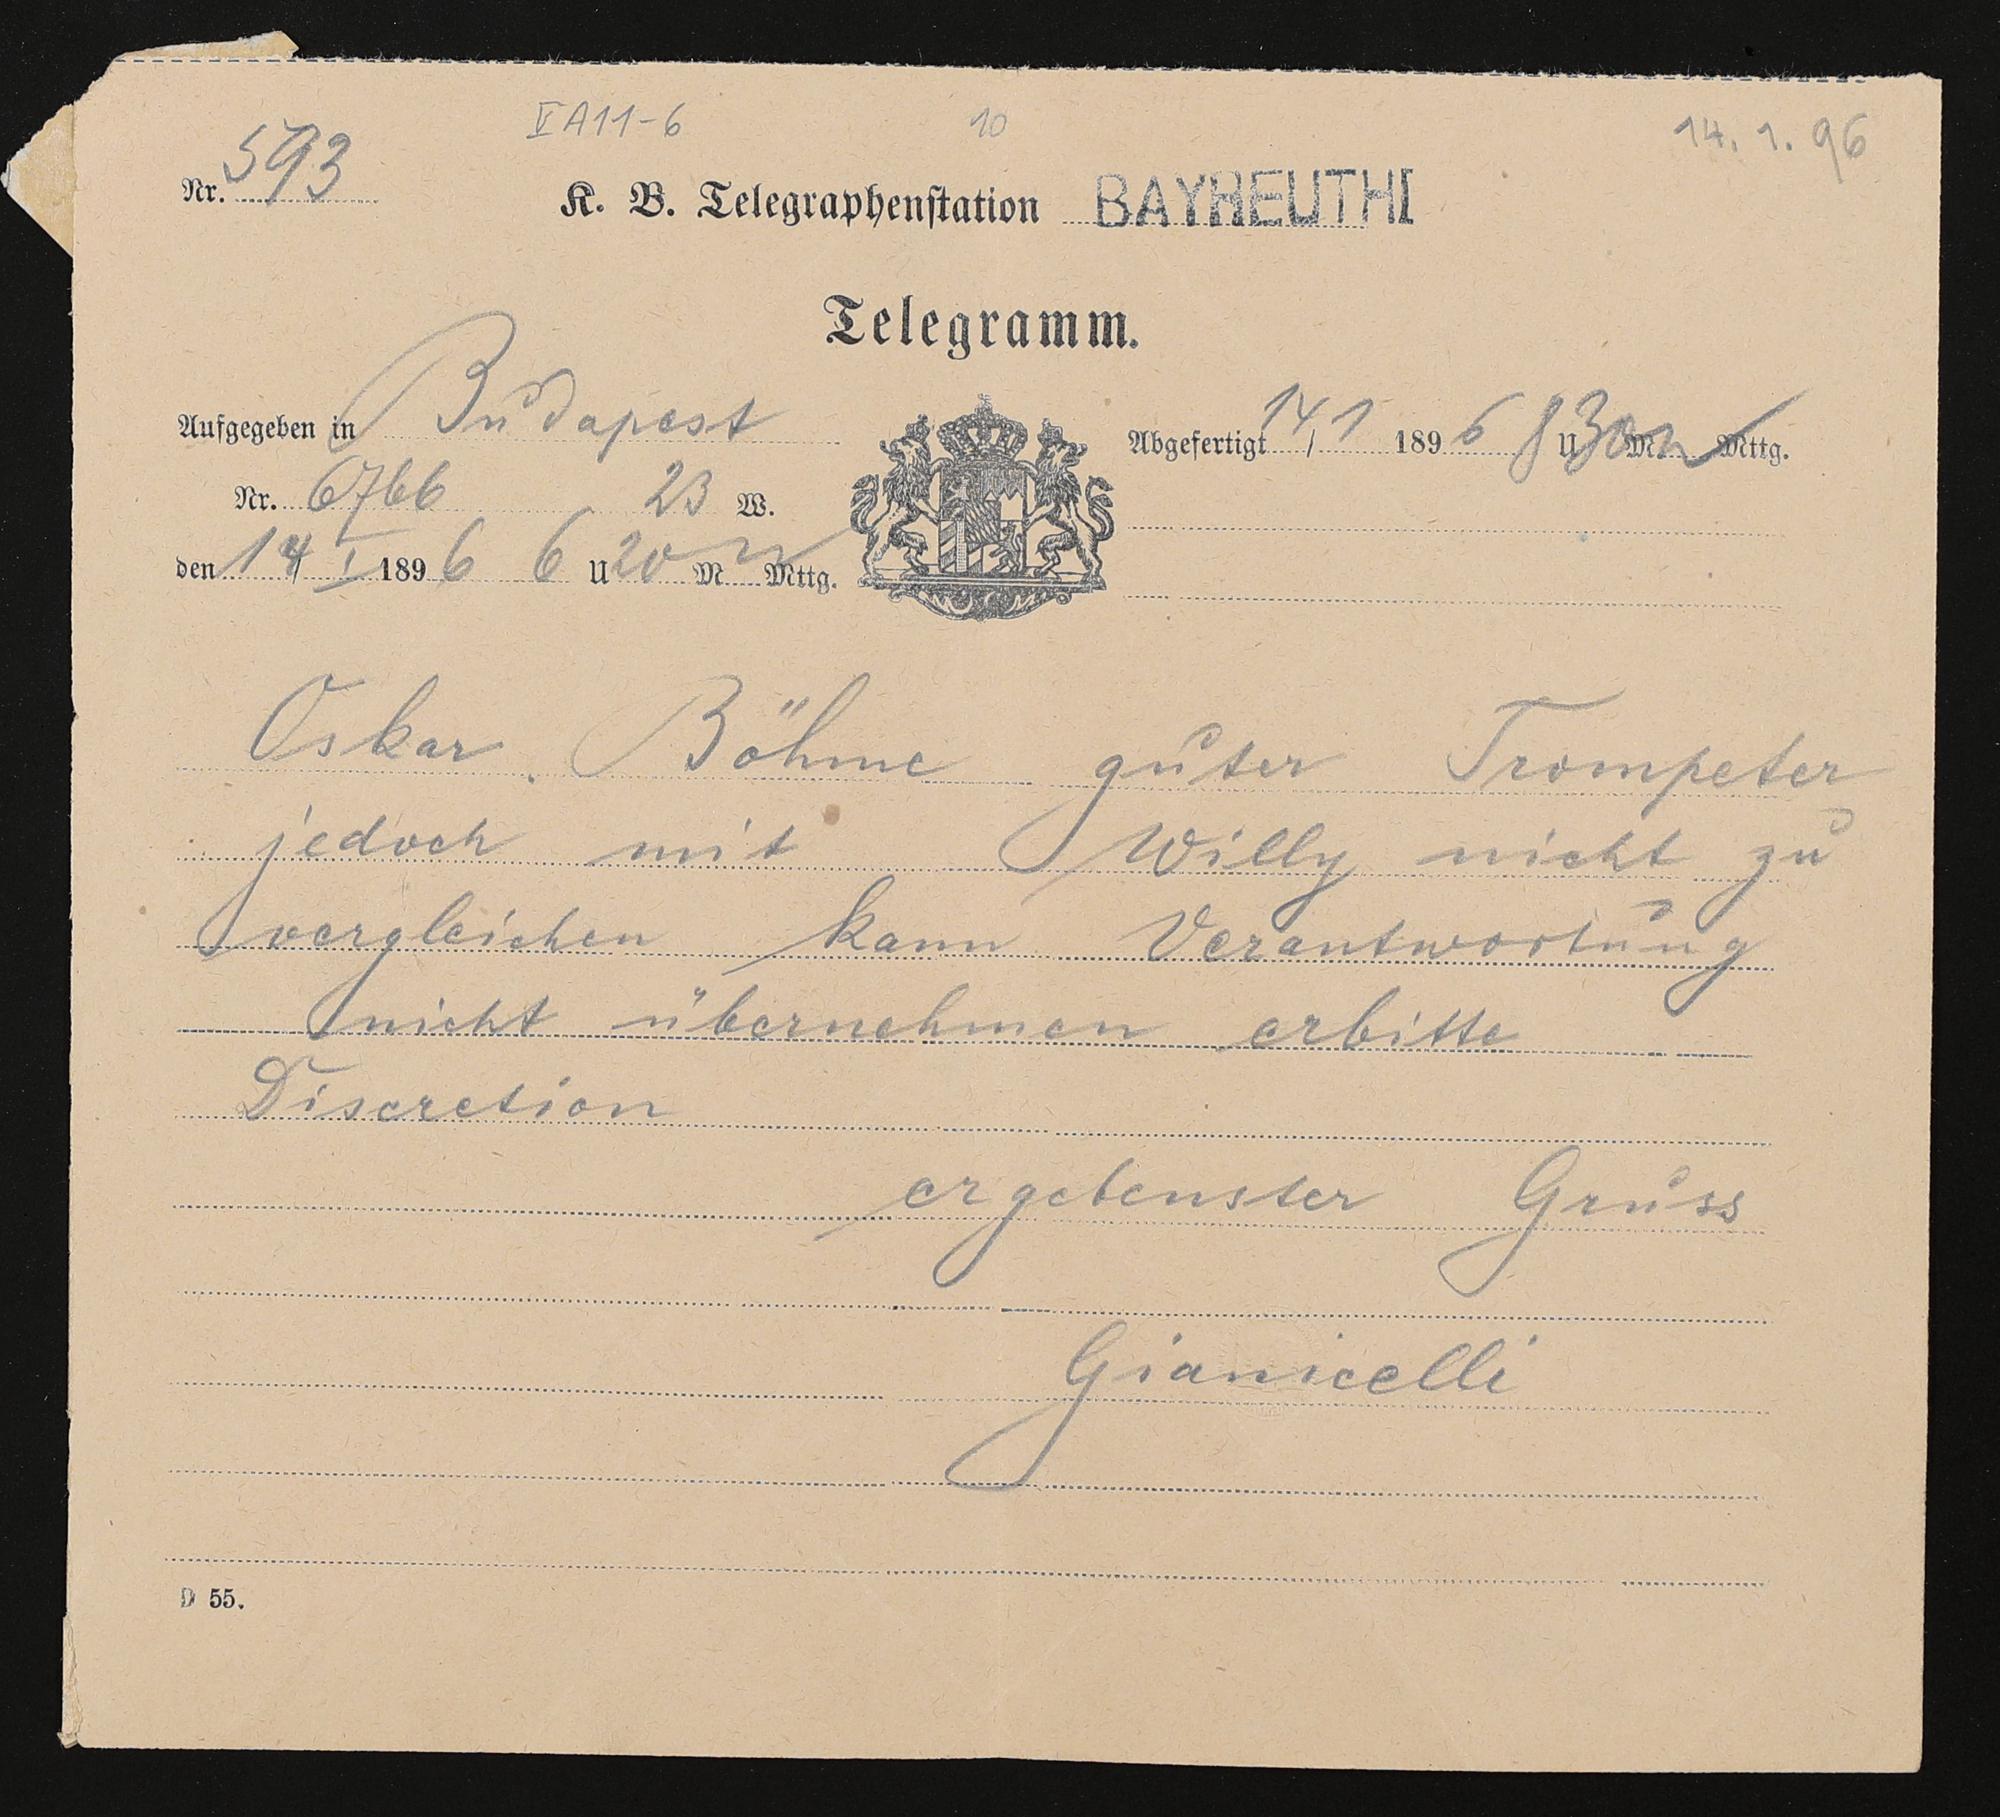 V A11-6 10 14. 1. 96
Nr. 593 K. B. Telegraphenstation BAYREUTH I
Telegramm.
Aufgegeben in Budapest Abgefertigt 14/1 1896 8 U 30 M n Mttg.
Nr. 6766 23 W.
den 14/I 1896 6 U 20 M n Mttg.
Oskar Böhme guter Trompeter
jedoch mit Willy nicht zu
vergleichen kann Verantwortung
nicht übernehmen erbitte
Discretion
ergebenster Gruss
Gianicelli
D 55.